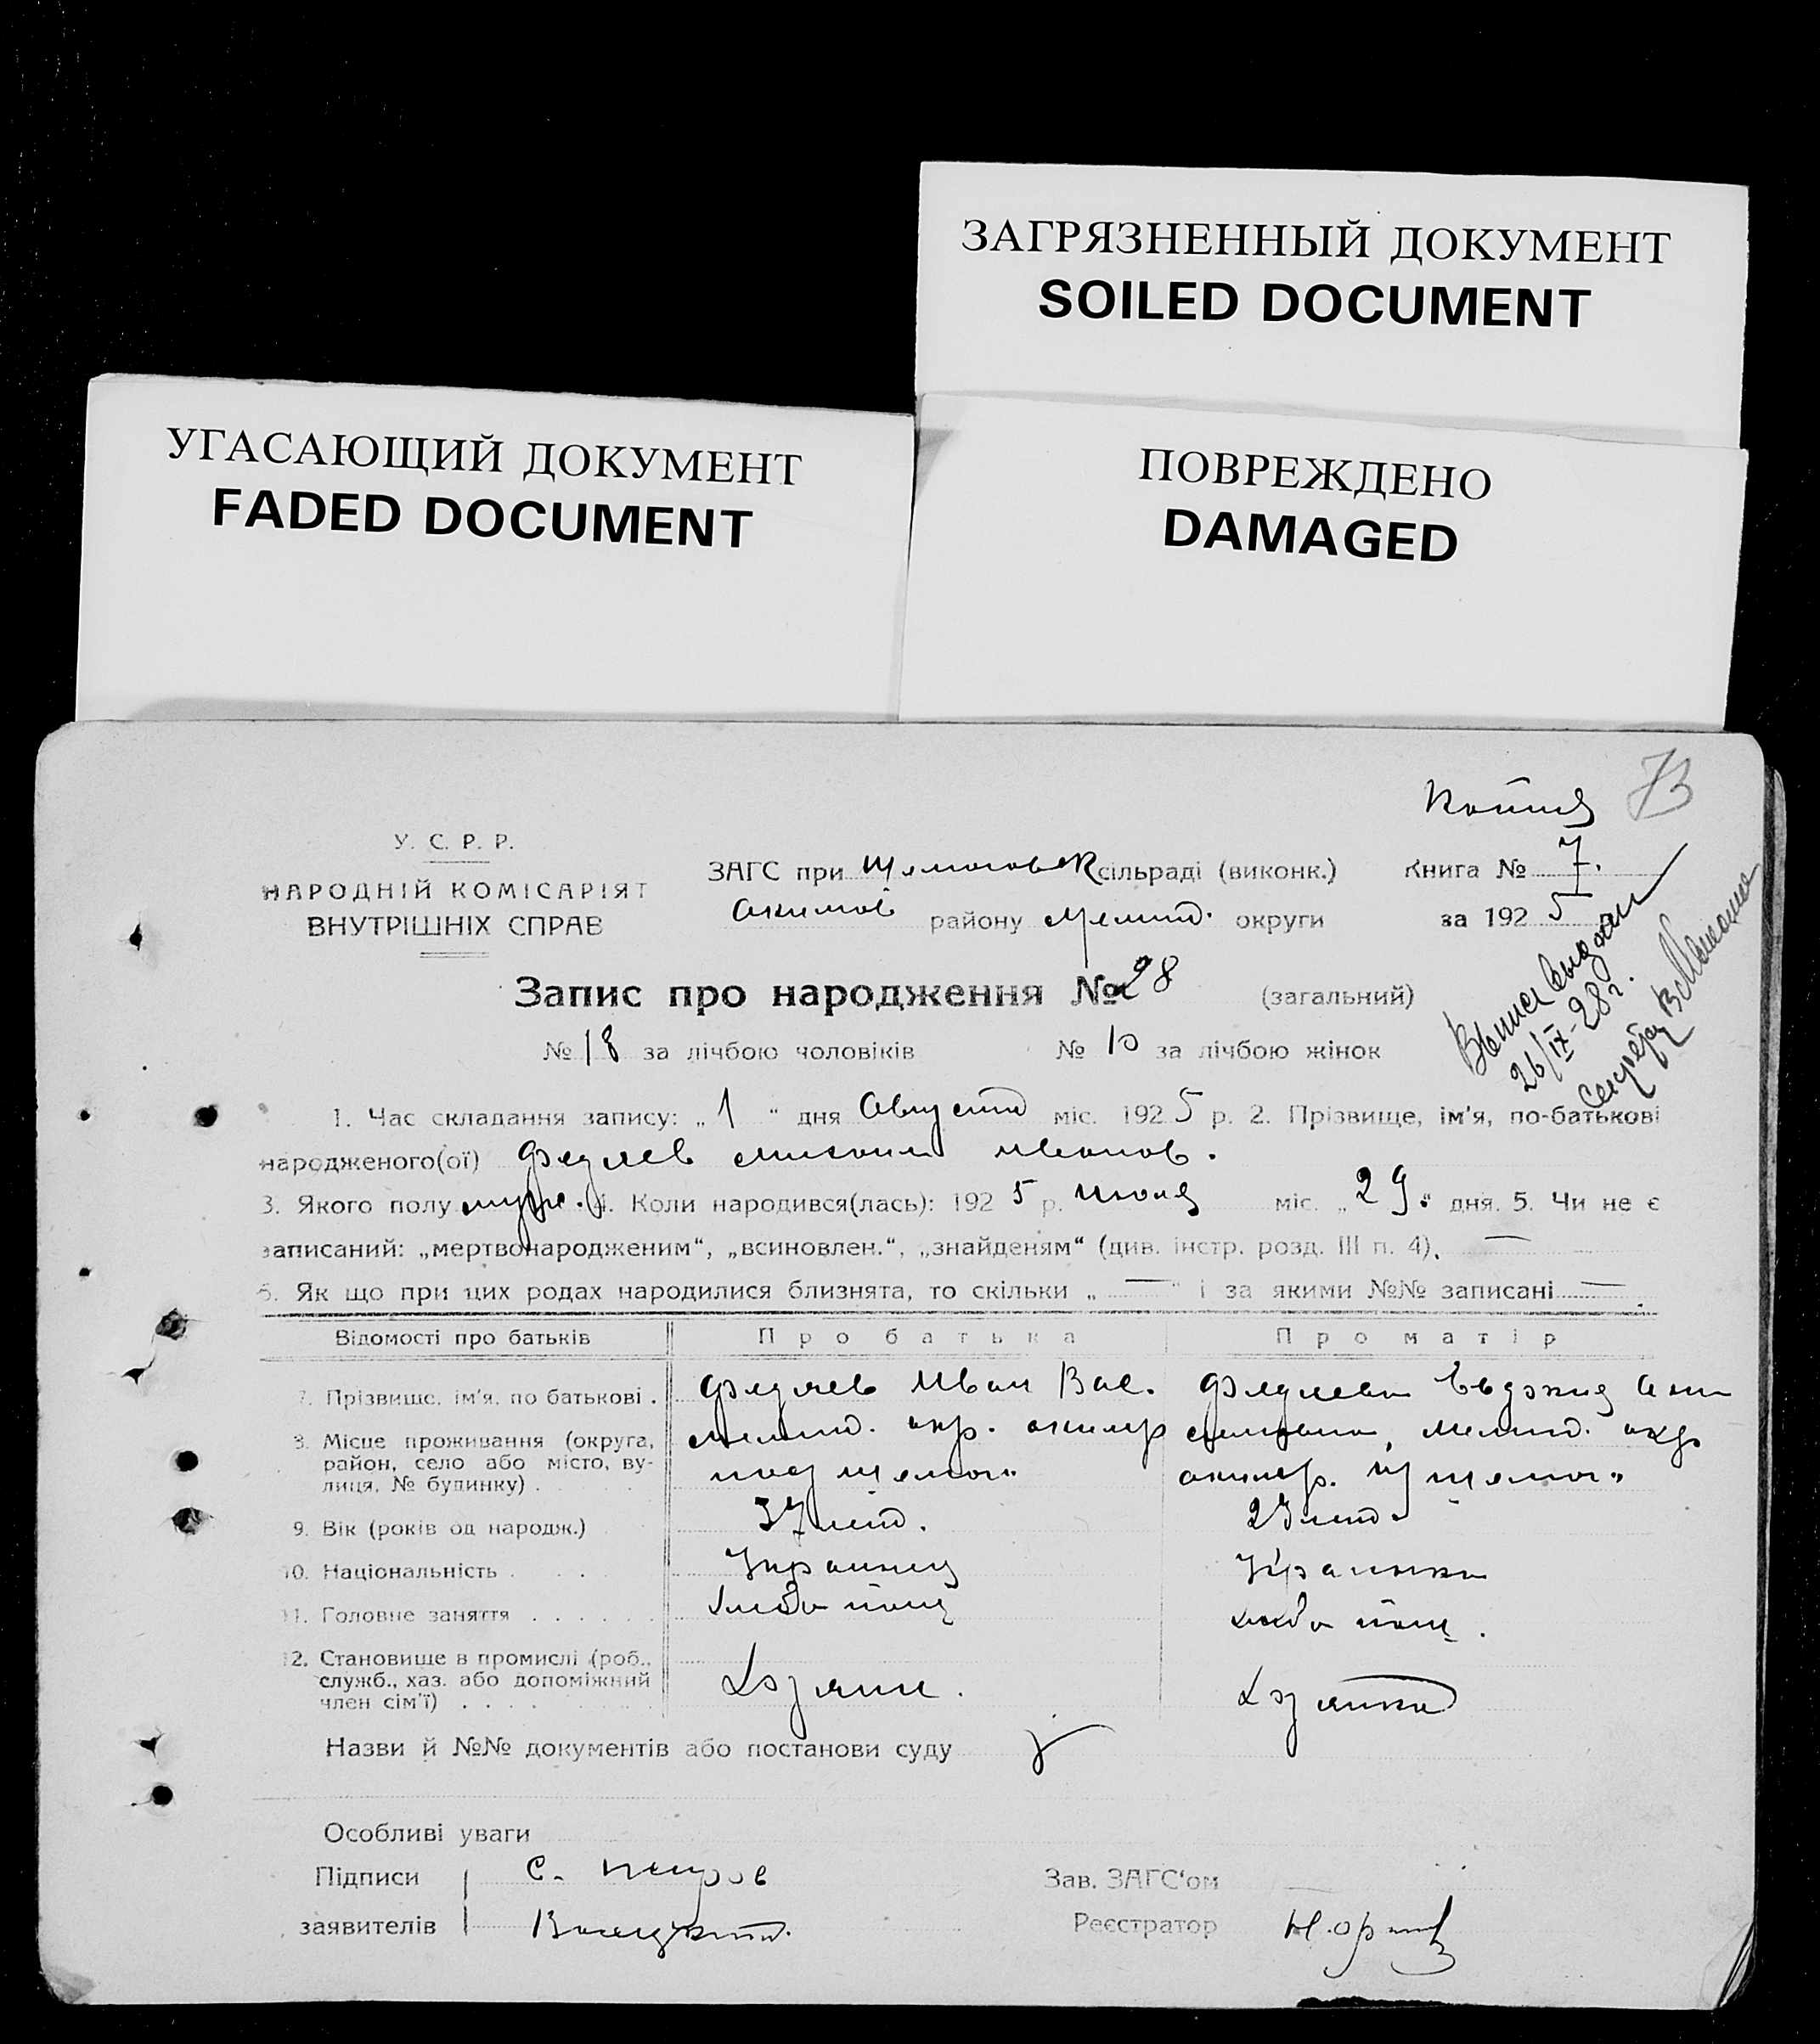 ЗАГРЯЗНЕННЫЙ ДОКУМЕНТ
SOILED DOCUMENT
УГАСАЮЩИЙ ДОКУМЕНТ
FADED DOCUMENT
ПОВРЕЖДЕНО
DAMAGED
Копия 73
У. С. Р. Р.
НАРОДНІЙ КОМІСАРІЯТ
ВНУТРІШНІХ СПРАВ
ЗАГС при сільраді (виконк.) Книга № 7.
Акимов району Мелит. округи за 1925
Запис про народження № 28 (загальний)
№ 18 за лічбою чоловіків № 10 за лічбою жінок
26/IX-28 г.
1. Час складання запису: „1“ дня Август міс. 1925 р. 2. Прізвище, ім'я, по-батькові
народженого(ої) Федяев Михаил Иванов.
3. Якого полу муж. 4. Коли народився(лась): 1925 р. июля міс. „29“ дня. 5. Чи не є
записаний: „мертвонародженим“, „всиновлен.“, „знайденям“ (див. інстр. розд. III п. 4). —
6. Як що при цих родах народилися близнята, то скільки „ — “ і за якими №№ записані — .
Відомості про батьків Про батька Про матір
7. Прізвище, ім'я, по батькові . Федяев Иван Вас. Федяева
8. Місце проживання (округа, район, село або місто, вулиця, № будинку) . Мелит. окр. Мелит. окр
9. Вік (років од народж.) 37 лет. лет
10. Національність . . . Украинец Украинка
11. Головне заняття . . . . . . Хлебопаш Хлебопаш.
12. Становище в промислі (роб., служб., хаз. або допоміжний член сім'ї) . . . . Хозяин. Хозяйка
Назви й №№ документів або постанови суду
Особливі уваги
Підписи С. Петров Зав. ЗАГС'ом
заявителів Реєстратор